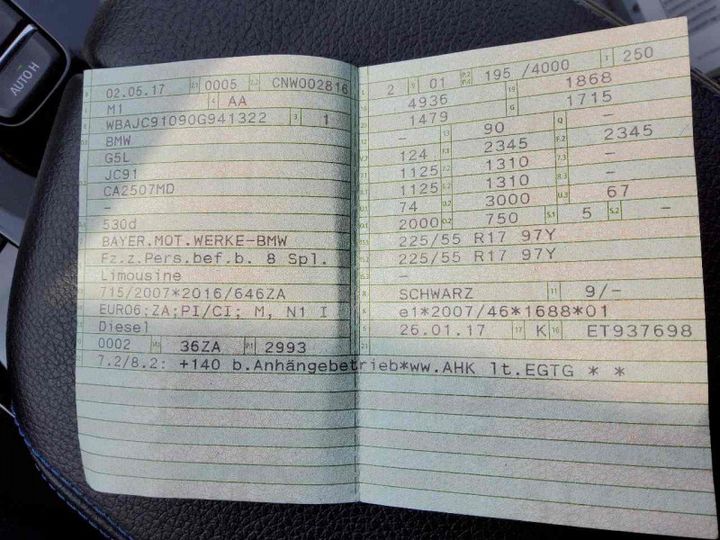 AUTO H
02.05.17 0005 CNW002816
M1 AA
WBAJC91090G941322 1
BMW
G5L
JC91
CA2507MD
-
530d
BAYER.MOT.WERKE-BMW
Fz.z.Pers.bef.b. 8 Spl.
Limousine
715/2007*2016/646ZA
EURO6;ZA;PI/CI; M, N1 I
Diesel
0002 36ZA 2993
7.2/8.2: +140 b.Anhängebetrieb*ww.AHK lt.EGTG * *
2 01 195 /4000 250
4936 1868
1479 1715
- 90 -
124 2345 2345
1125 1310 -
1125 1310 -
74 3000 67
2000 750 5 -
225/55 R17 97Y
225/55 R17 97Y
-
SCHWARZ 9/-
e1*2007/46*1688*01
26.01.17 K ET937698